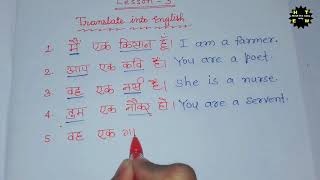 Lesson - 3
Translate into English
1. मैं एक किसान हूँ। I am a farmer.
2. आप एक कवि हैं। You are a poet.
3. वह एक नर्स है। She is a nurse.
4. तुम एक नौकर हो। You are a servent.
5. वह एक गा